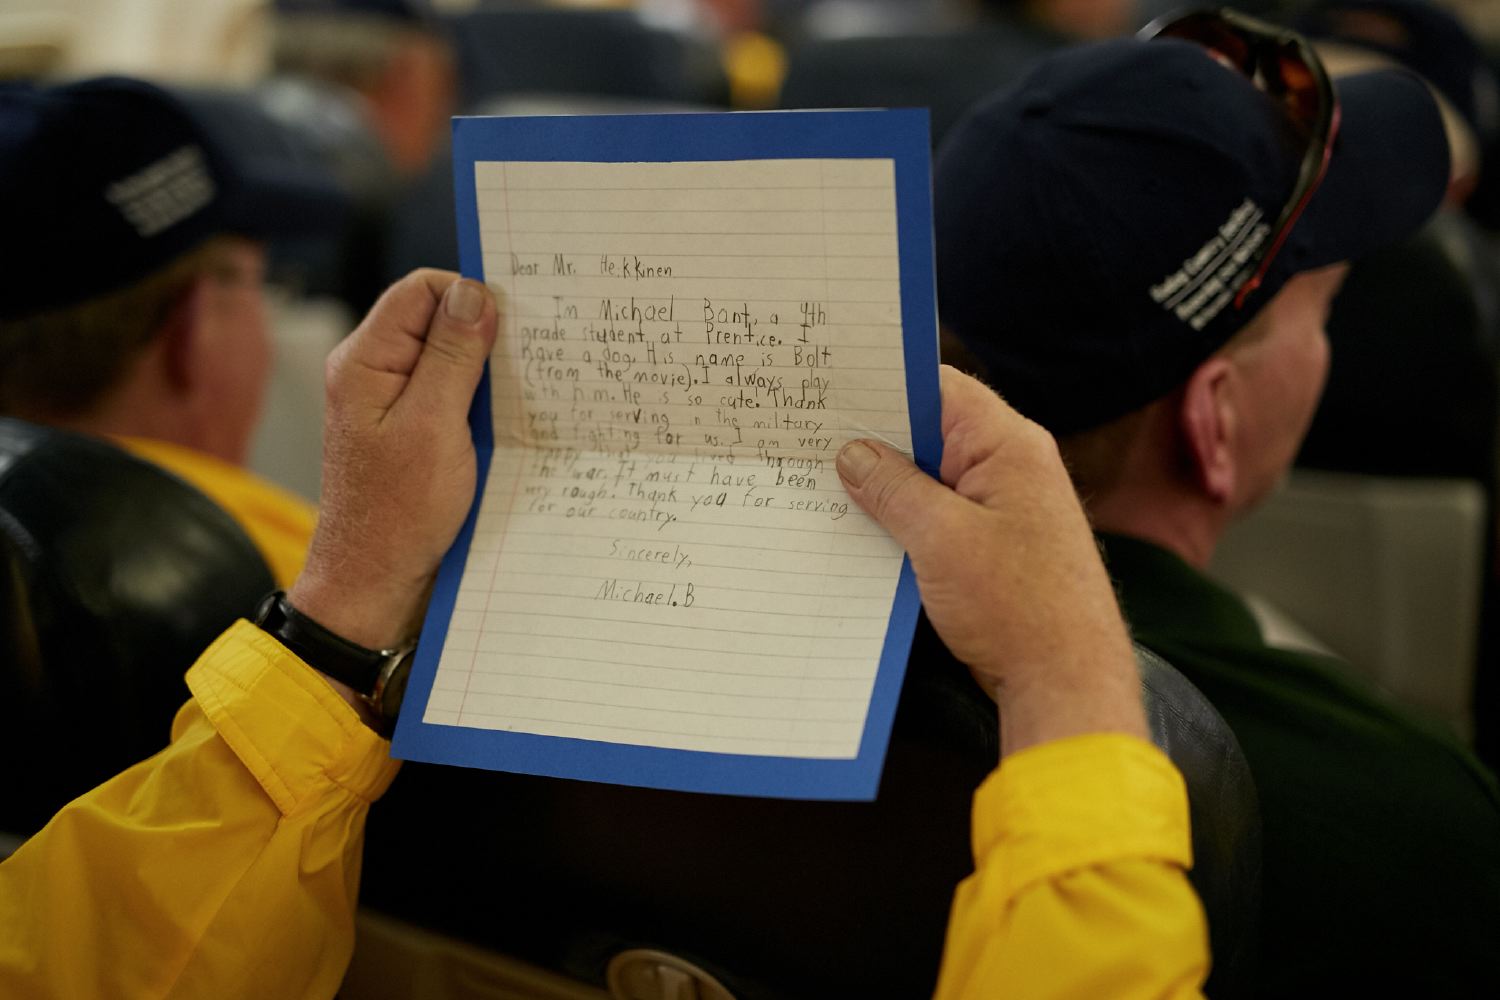 Dear Mr. Heikkinen
I'm Michael Bant, a 4th
grade student at Prentice. I
have a dog. His name is Bolt
(from the movie). I always play
with him. He is so cute! Thank
you for serving in the military
and fighting for us. I am very
happy that you lived through
the war. It must have been
very rough. Thank you for serving
for our country.
Sincerely,
Michael.B